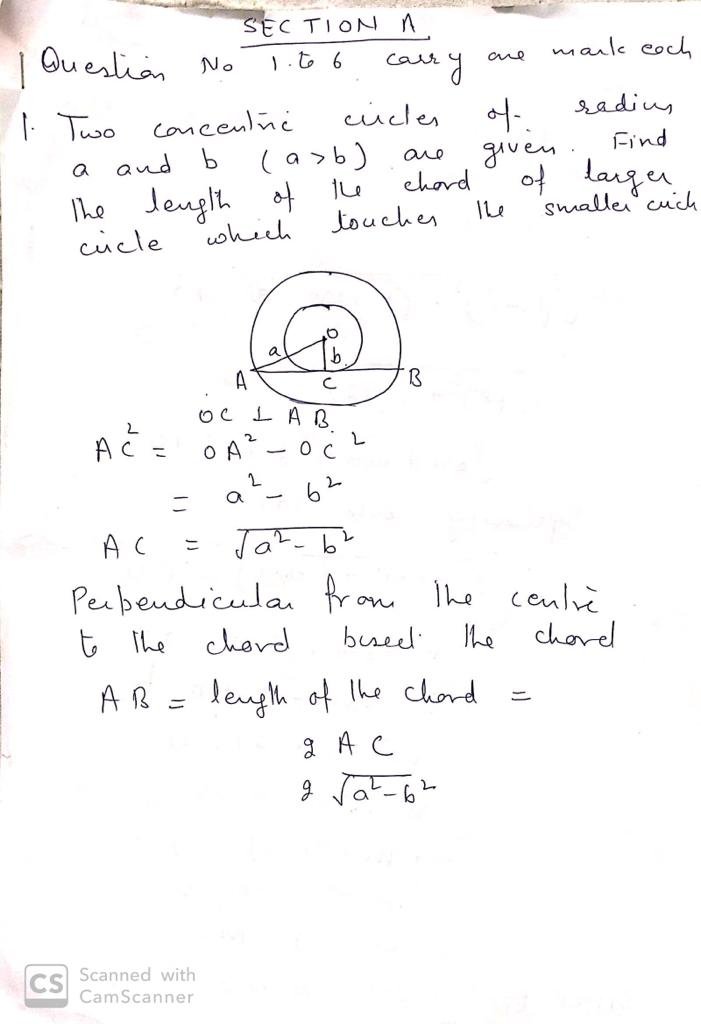 SECTION A
Question No 1. to 6 carry one mark each
1. Two concentric circles of radius
a and b (a>b) are given. Find
the length of the chord of larger
circle which touches the smaller circle
O
a
b
A
C
B
OC ⊥ AB.
AC² = OA² - OC²
= a² - b²
AC = √a² - b²
Perpendicular from the centre
to the chord bisect the chord
AB = length of the chord =
2 AC
2 √a²-b²
CS
Scanned with
CamScanner